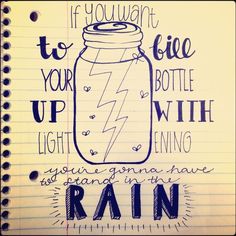 if you want
to fill
YOUR BOTTLE
UP WITH
LIGHT ENING
you're gonna have
to stand in the
RAIN